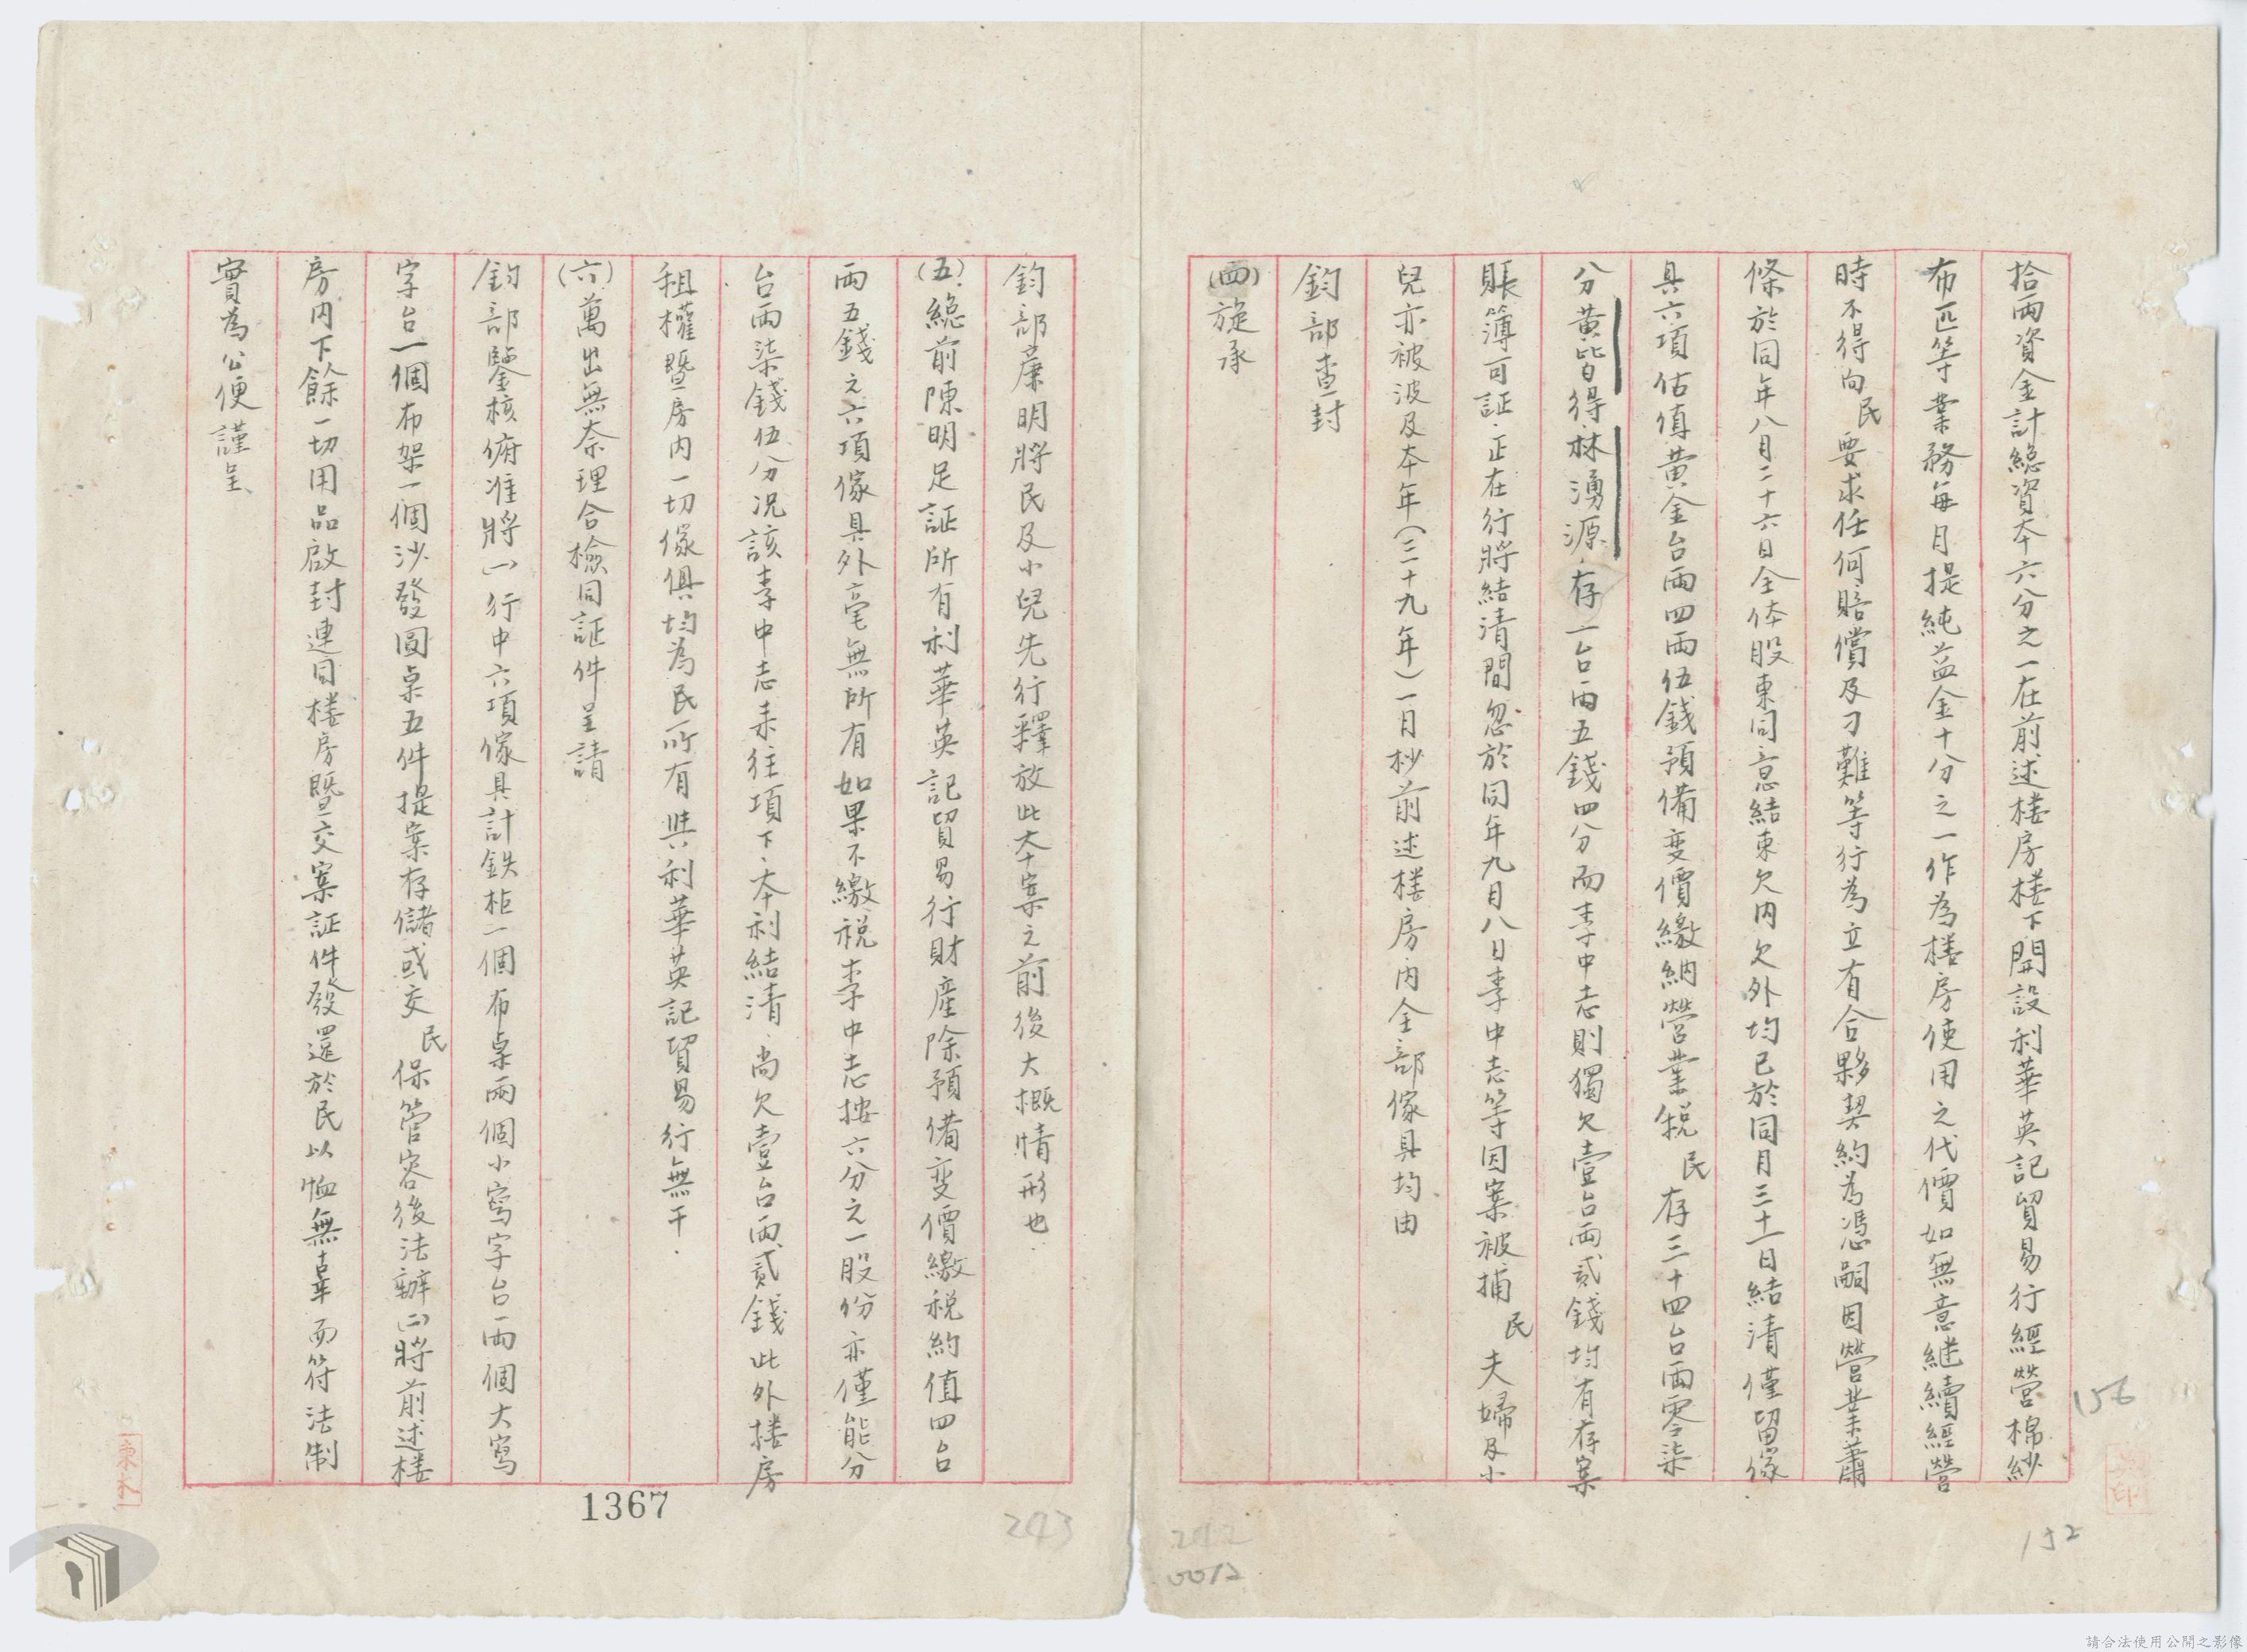 拾兩資金計總資本六分之一在前述樓房樓下開設利華英記貿易行經營棉紗
布匹等業務每月提純益金十分之一作為樓房使用之代價如無意繼續經營
時不得向民要求任何賠償及刁難等行為立有合夥契約為憑嗣因營業蕭
條於同年八月二十六日全体股東同意結束欠內欠外均已於同月三十一日結清僅留傢
具六項估值黃金台兩四兩伍錢預備变價繳納營業稅民存三十四台兩零柒
分黃皆得林湧源存一台兩五錢四分而李中志則獨欠壹台兩貳錢均有存案
賬簿可証正在行將結清間忽於同年九月八日李中志等因案被捕民夫婦及小
兒亦被波及本年(三十九年)一月杪前述樓房內全部傢具均由
鈞部查封
(四)旋承
鈞部廉明將民及小兒先行釋放此本案之前後大概情形也
(五)總前陳明足証所有利華英記貿易行財產除預備变價繳稅約值四台
兩五錢之六項傢具外毫無所有如果不繳稅李中志按六分之一股份亦僅能分
台兩柒錢伍分況該李中志來往項下本利結清尚欠壹台兩貳錢此外樓房
租權暨房內一切傢俱均為民所有與利華英記貿易行無干
(六)萬出無奈理合檢同証件呈請
鈞部鑒核俯准將(一)行中六項傢具計鉄柜一個布桌兩個小寫字台兩個大寫
字台一個布架一個沙發圓桌五件提案存儲或交民保管容後法辦(二)將前述樓
房內下餘一切用品啟封連同樓房暨交案証件發還於民以恤無辜而符法制
實為公便謹呈
1367
243
242
0072
156
152
請合法使用公開之影像